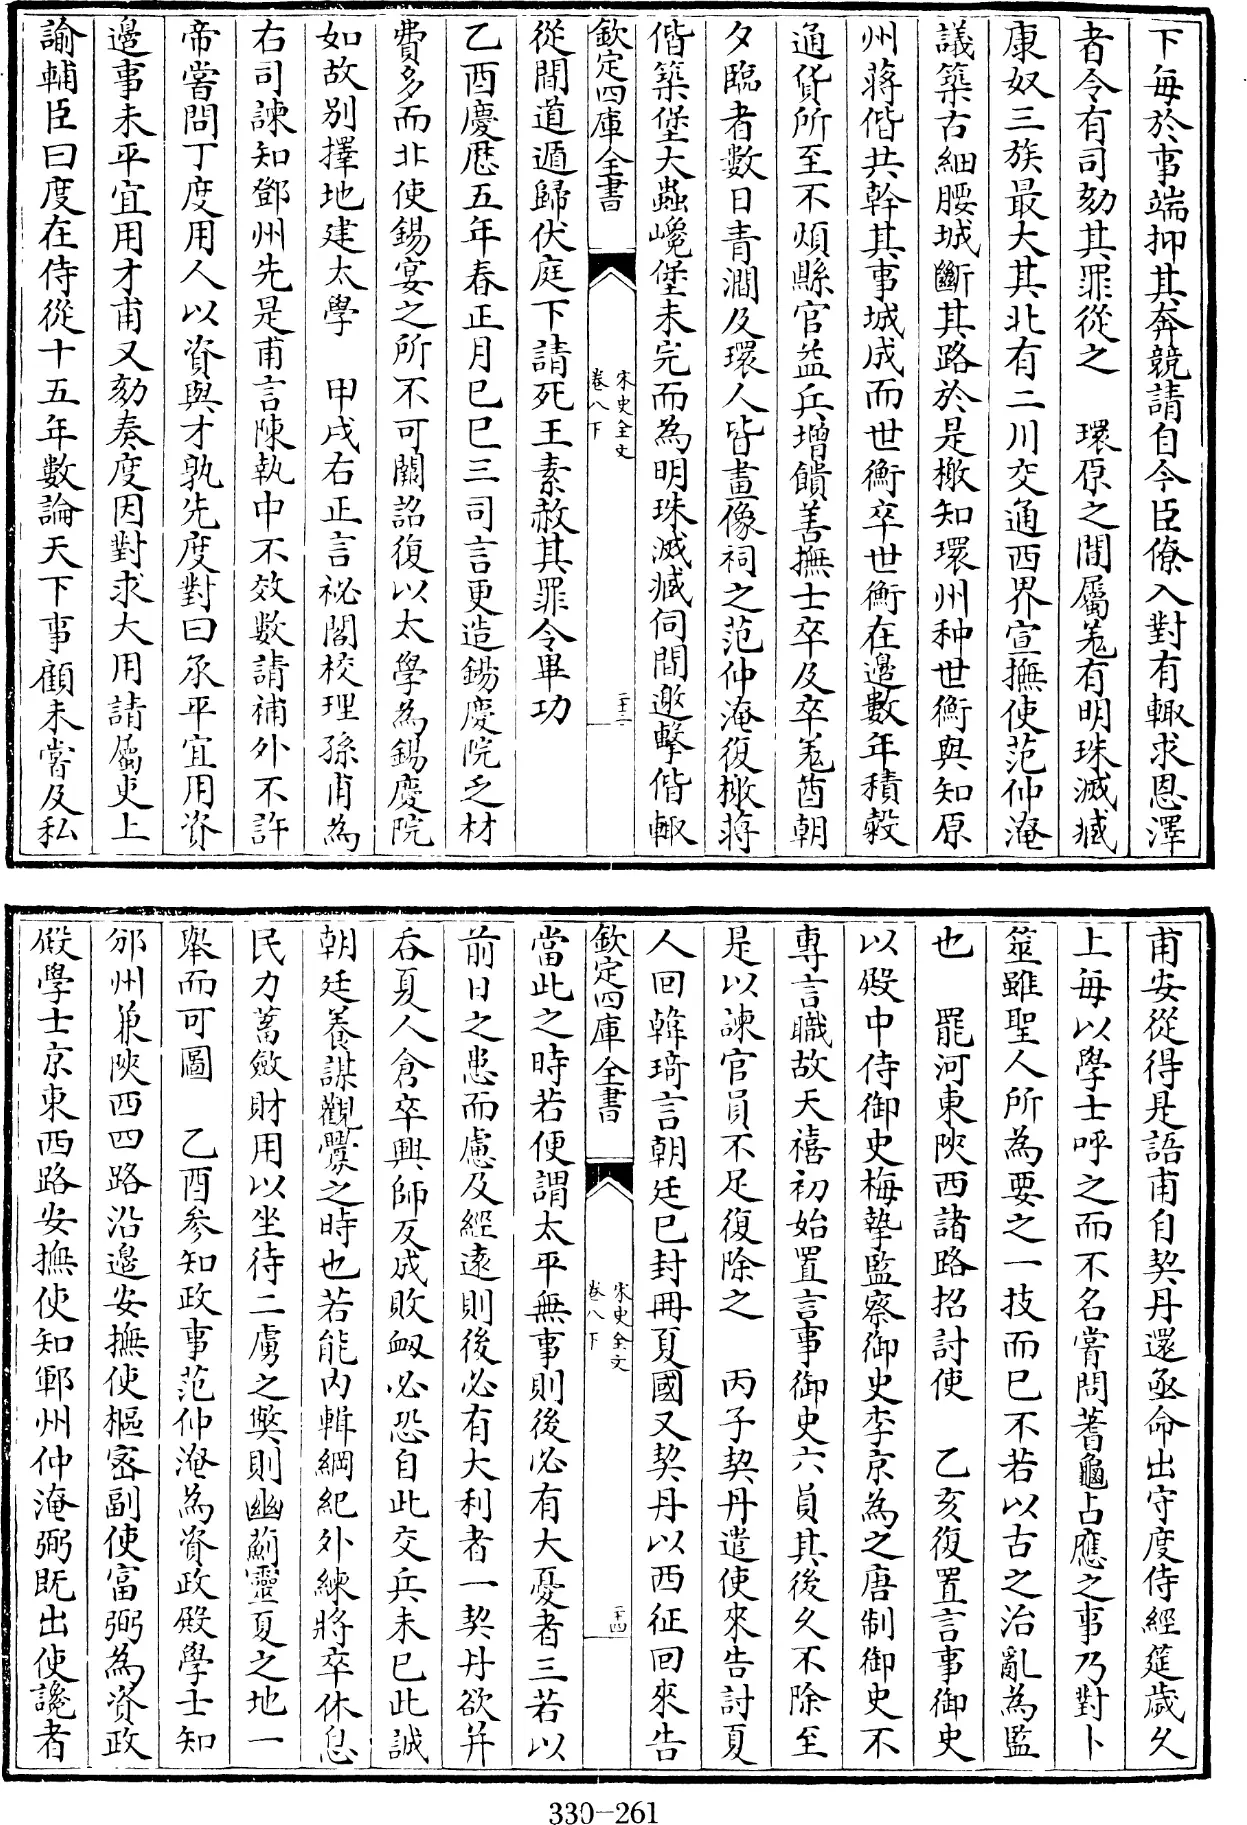 下毎於事端抑其奔競請自今臣僚入對有輙求恩澤
者令有司劾其罪從之　環原之間屬羌有明珠滅臧
康奴三族最大其北有二川交通西界宣撫使范仲淹
議築古細腰城斷其路於是檄知環州种世衡與知原
州蔣偕共幹其事城成而世衡卒世衡在邊數年積榖
通貨所至不煩縣官益兵增饋善撫士卒及卒羌酋朝
夕臨者數日青澗及環人皆畫像祠之范仲淹復檄蔣
偕築堡大蟲巉堡未完而為明珠滅臧伺間邀擊偕輙
欽定四庫全書
宋史全文
卷八下
二十三
從間道遁歸伏庭下請死王素赦其罪令畢功
乙酉慶厯五年春正月己巳三司言更造錫慶院乏材
費多而北使錫宴之所不可闕詔復以太學為錫慶院
如故别擇地建太學　甲戌右正言祕閣校理孫甫為
右司諫知鄧州先是甫言陳執中不效數請補外不許
帝嘗問丁度用人以資與才孰先度對曰承平宜用資
邊事未平宜用才甫又劾奏度因對求大用請屬吏上
諭輔臣曰度在侍從十五年數論天下事顧未嘗及私
甫安從得是語甫自契丹還亟命出守度侍經筵歲久
上毎以學士呼之而不名嘗問蓍龜占應之事乃對卜
筮雖聖人所為要之一技而已不若以古之治亂為監
也　罷河東陜西諸路招討使　乙亥復置言事御史
以殿中侍御史梅摯監察御史李京為之唐制御史不
專言職故天禧初始置言事御史六員其後久不除至
是以諫官員不足復除之　丙子契丹遣使來告討夏
人回韓琦言朝廷已封冊夏國又契丹以西征回來告
欽定四庫全書
宋史全文
卷八下
二十四
當此之時若便謂太平無事則後必有大憂者三若以
前日之患而慮及經遠則後必有大利者一契丹欲并
吞夏人倉卒興師反成敗衂必恐自此交兵未已此誠
朝廷養謀觀釁之時也若能内輯綱紀外練將卒休息
民力蓄斂財用以坐待二虜之弊則幽薊靈夏之地一
舉而可圖　乙酉参知政事范仲淹為資政殿學士知
邠州兼陜西四路沿邊安撫使樞密副使富弼為資政
殿學士京東西路安撫使知鄆州仲淹弼既出使讒者
330-261